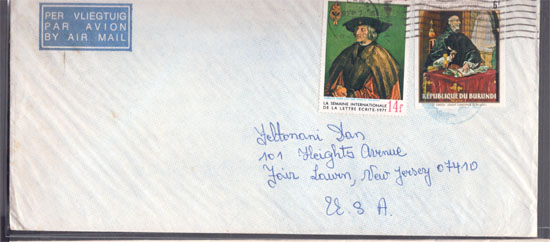 PER VLIEGTUIG
PAR AVION
BY AIR MAIL
LA SEMAINE INTERNATIONALE
DE LA LETTRE ECRITE-1971
14F
REPUBLIQUE DU BURUNDI
Feltonani Dan
101 Heights Avenue
Fair Lawn, New Jersey 07410
U.S.A.